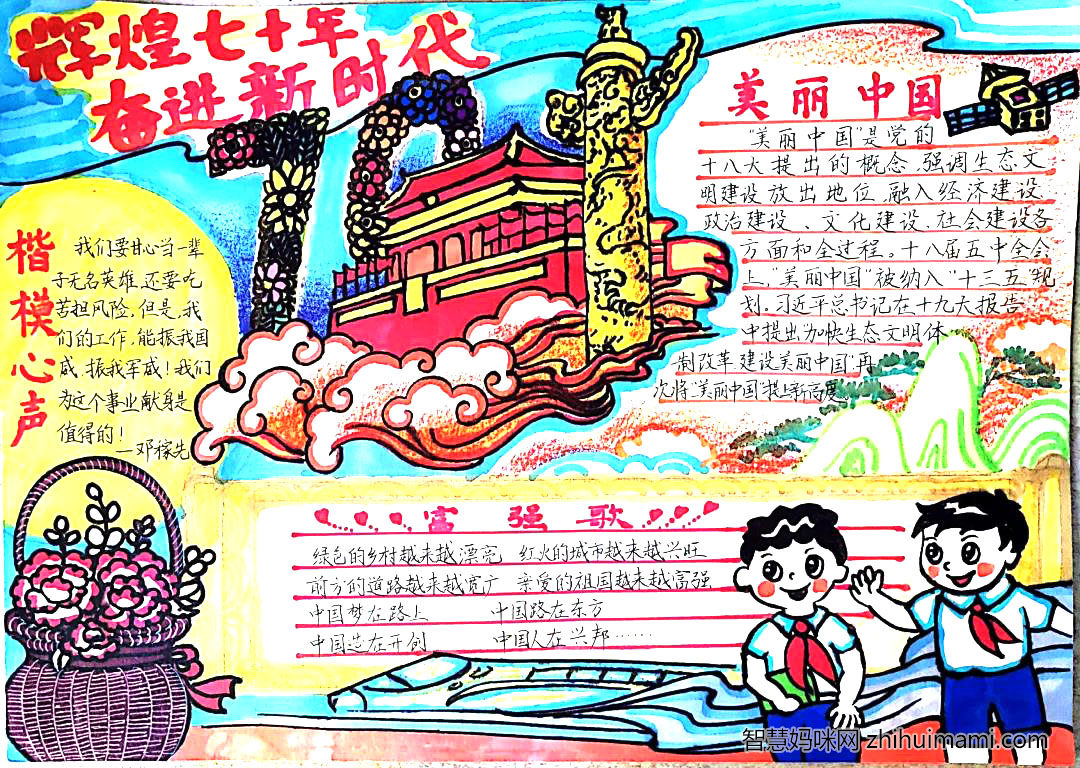 辉煌七十年
奋进新时代
70
楷模心声
我们要甘心当一辈
子无名英雄,还要吃
苦担风险,但是,我
们的工作,能振我国
威,振我军威!我们
为这个事业献身是
值得的!
—邓稼先
美丽中国
"美丽中国"是党的
十八大提出的概念,强调生态文
明建设放出地位,融入经济建设、
政治建设、文化建设、社会建设各
方面和全过程。十八届五中全会
上,"美丽中国"被纳入"十三五"规
划,习近平总书记在十九大报告
中提出加快生态文明体
制改革,建设美丽中国"再
次将"美丽中国"提上新高度
富强歌
绿色的乡村越来越漂亮 红火的城市越来越兴旺
前方的道路越来越宽广 亲爱的祖国越来越富强
中国梦在路上 中国路在东方
中国造在开创 中国人在兴邦……
智慧妈咪网 zhihuimami.com